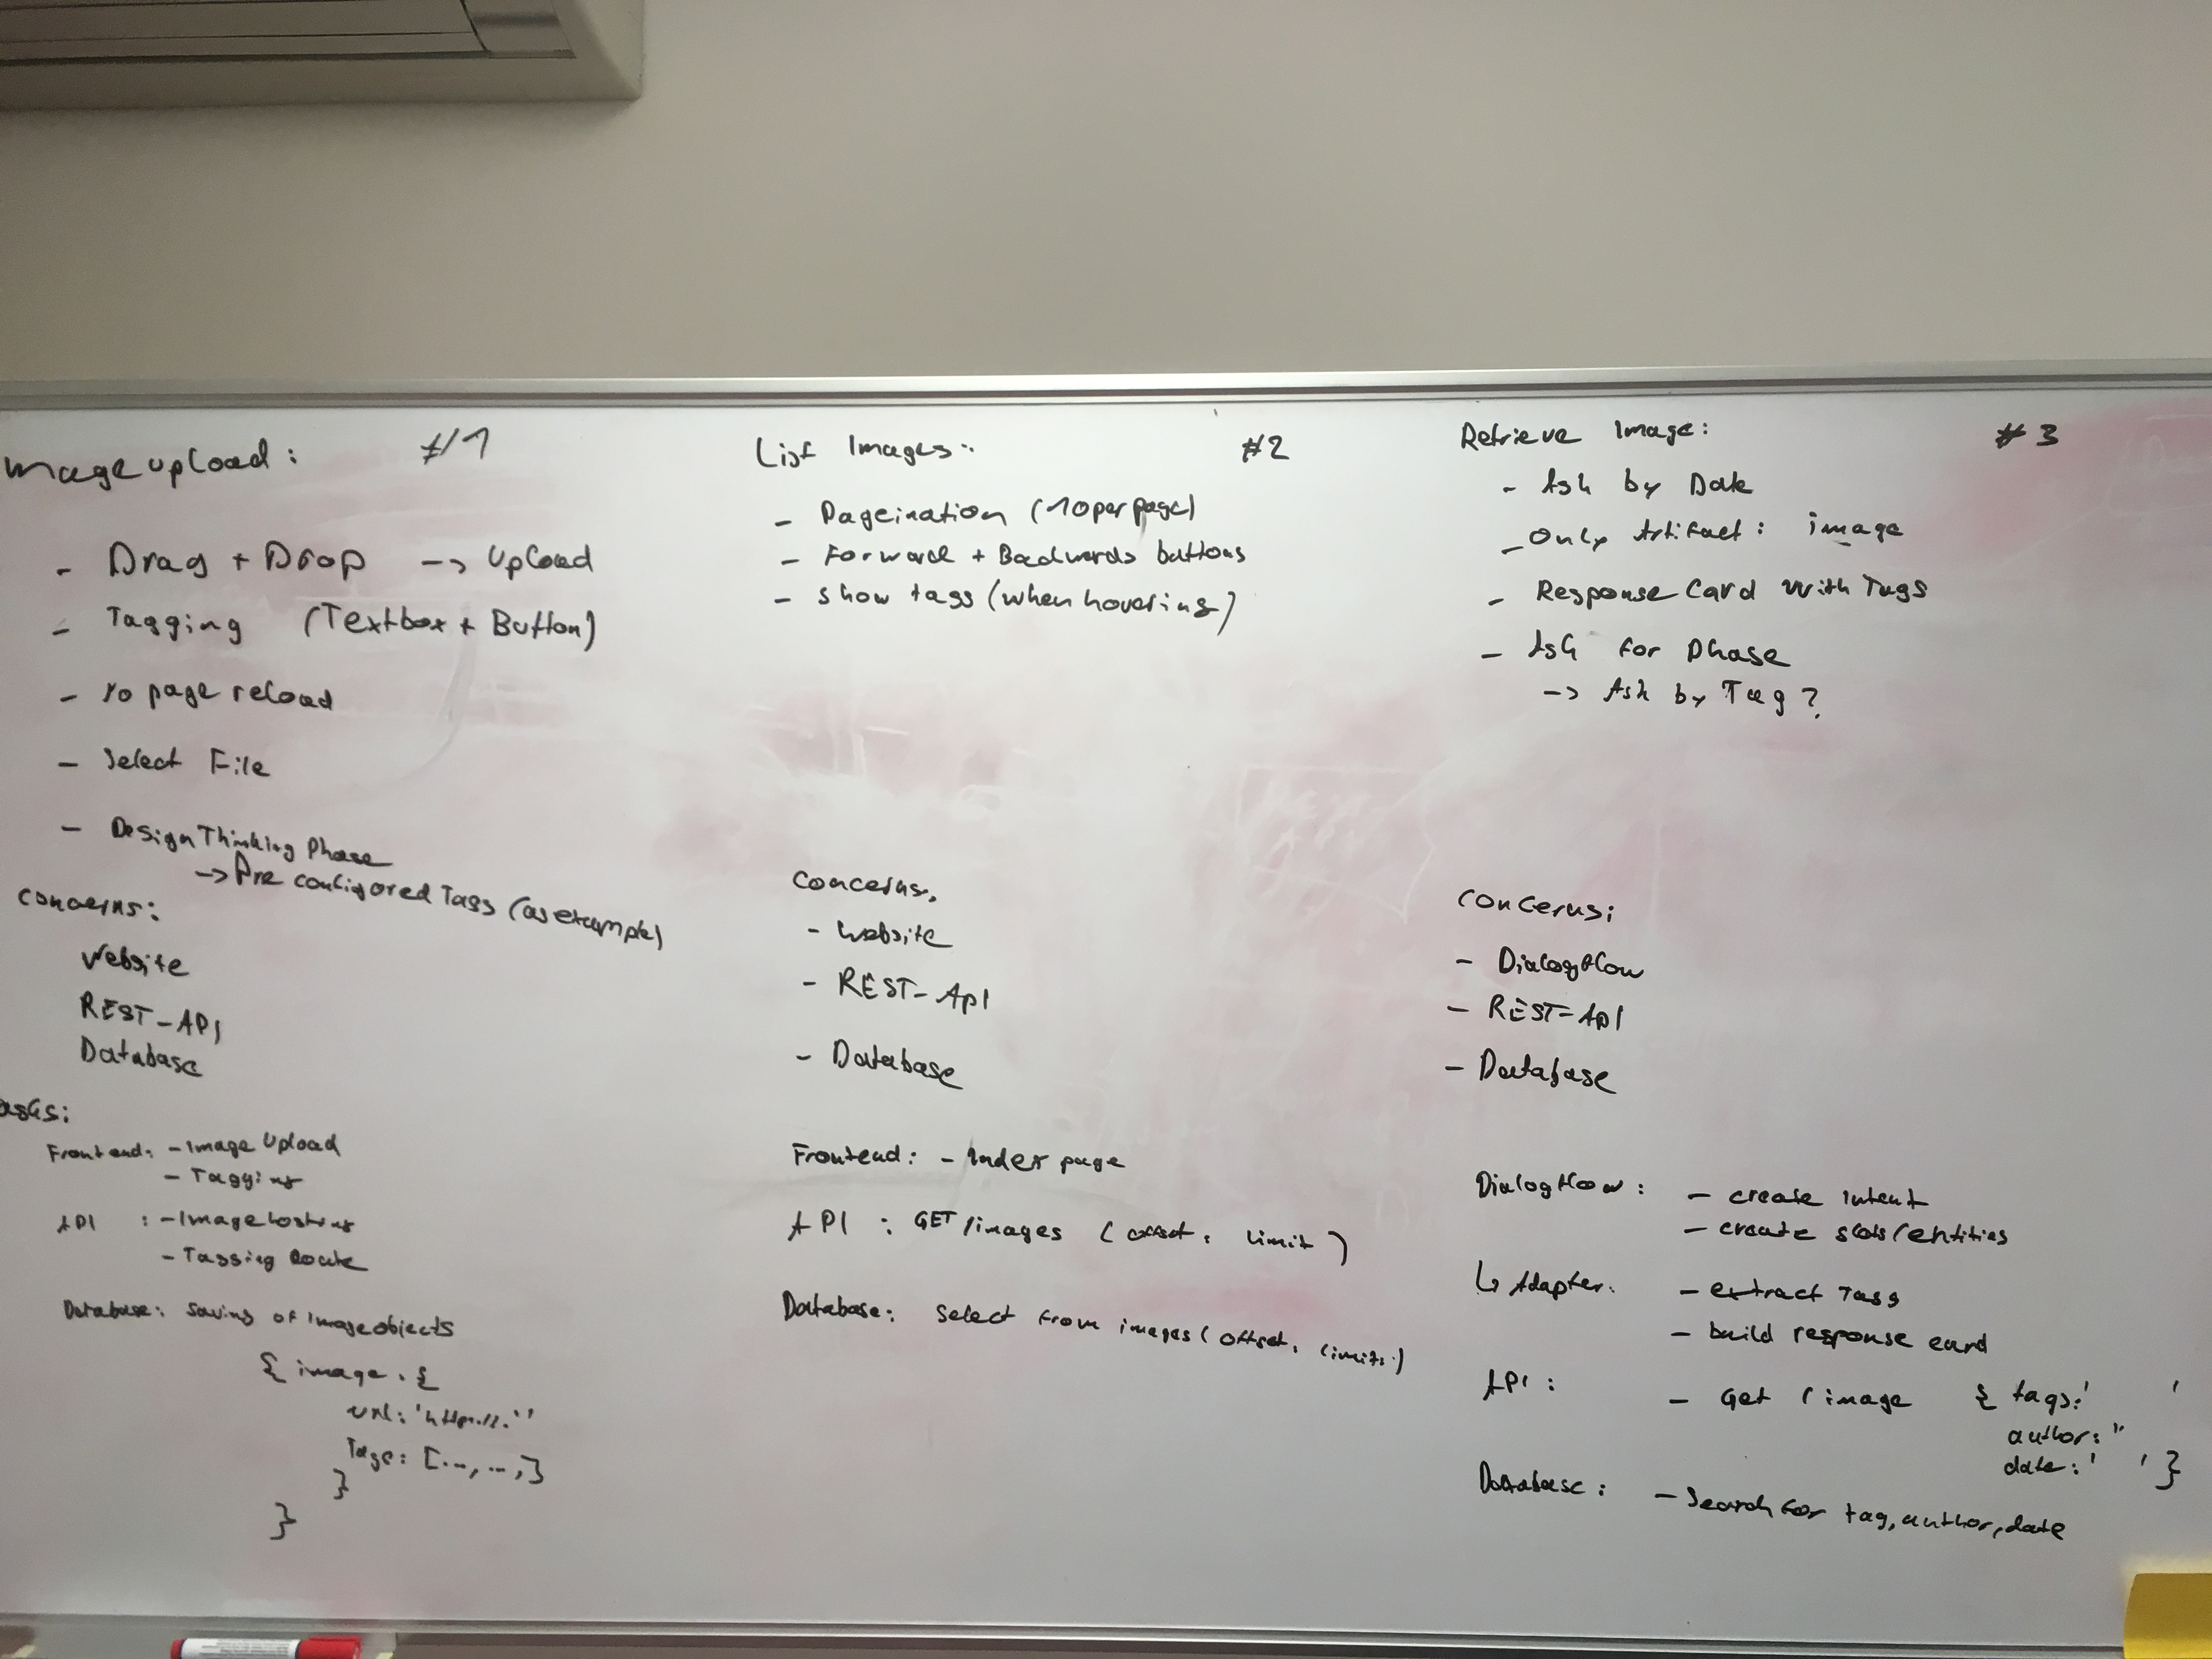 Image upload: #1
- Drag + Drop -> Upload
- Tagging (Textbox + Button)
- No page reload
- Select File
- Design Thinking Phase
-> Pre configored Tags (as example)
concerns:
Website
REST-API
Database
asks:
Frontend: - Image Upload
- Tagging
API : - Image hosting
- Tagging Route
Database: Saving of Image objects
{ image : {
url: 'http://.''
Tags: [..., ...,]
}
}
List Images: #2
- Pageination (10 per page)
- Forward + Backwards buttons
- show tags (when hovering)
Concerns:
- Website
- REST-API
- Database
Frontend: - Index page
API : GET /images (offset, limit)
Database: Select from images (offset, limit)
Retrieve Image: #3
- Ask by Date
- Only Artifact: image
- Response Card with Tags
- Ask for Phase
-> Ask by Tag?
Concerns:
- Dialogflow
- REST-API
- Database
Dialogflow: - create Intent
- create slots/entities
↳ Adapter: - extract Tags
- build response card
API: - Get /image { tags: ' '
author: ''
date: ' ' }
Database: - Search for tag, author, date